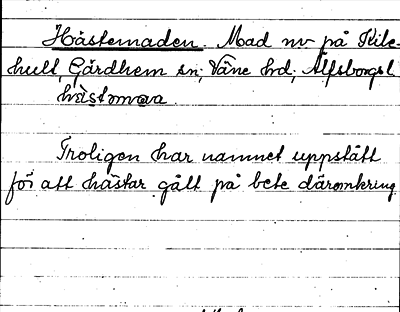 Hästemaden. Mad nv på Kile-
hult, Gärdhem sn, Väne hd, Älfsborgs l
hästomava
Troligen har namnet uppstått
för att hästar gått på bete däromkring